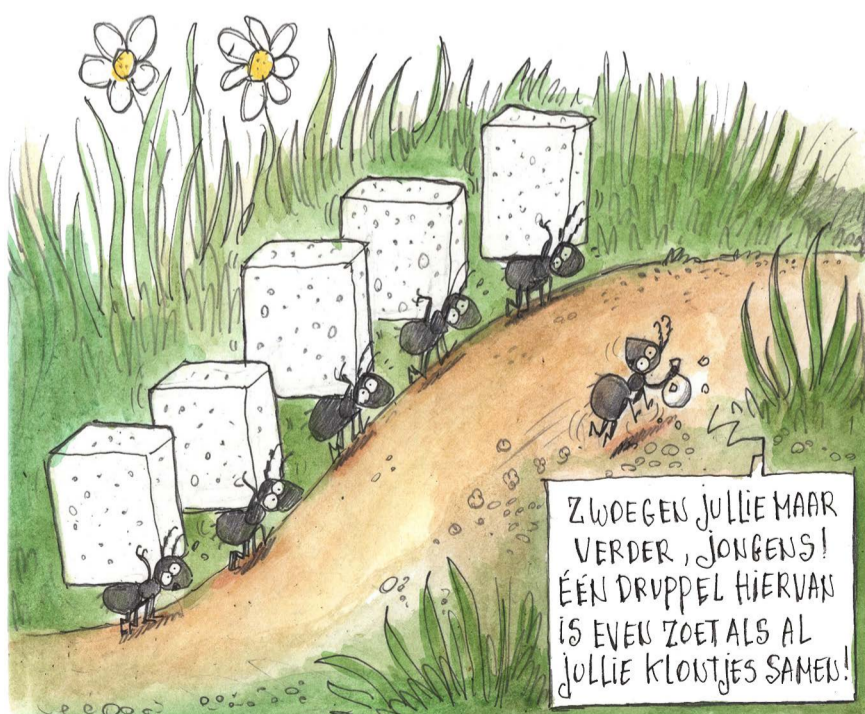 ZWOEGEN JULLIE MAAR
VERDER, JONGENS!
ÉÉN DRUPPEL HIERVAN
IS EVEN ZOET ALS AL
JULLIE KLONTJES SAMEN!